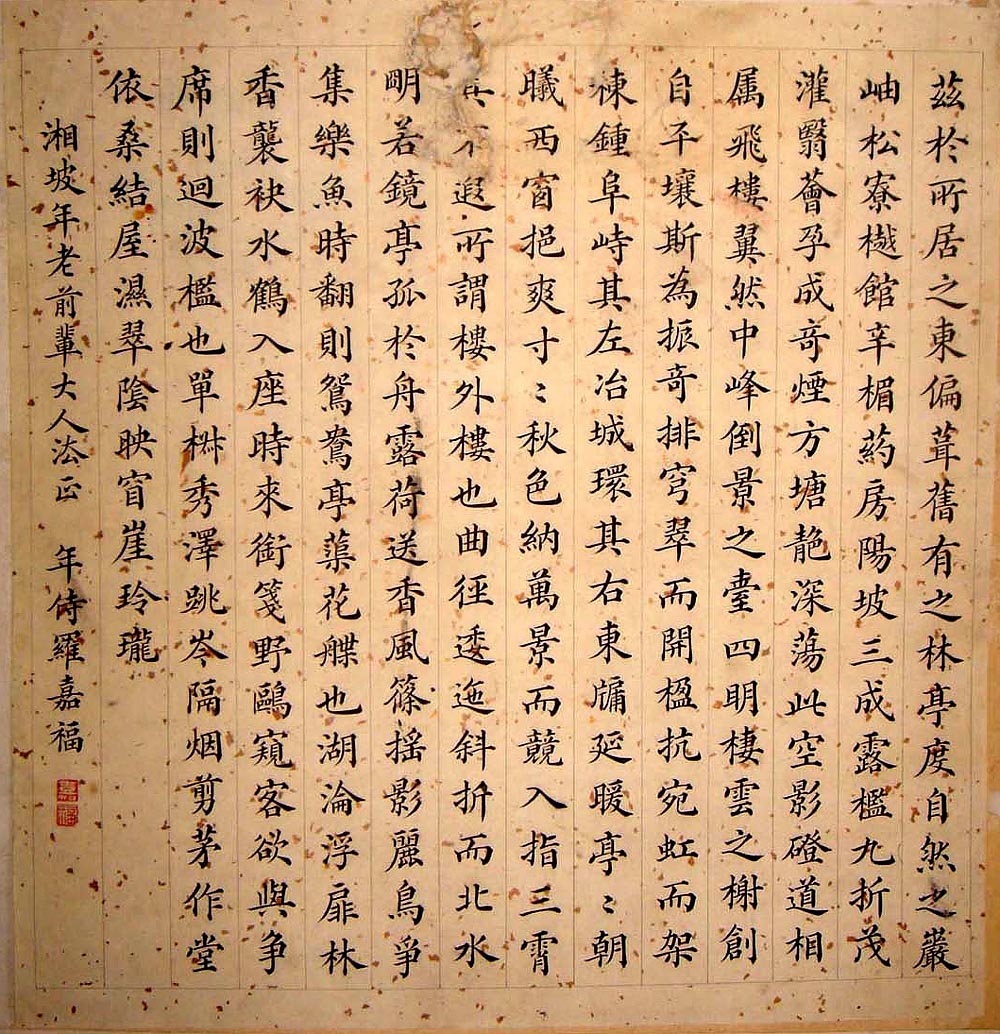 茲於所居之東偏葺舊有之林亭度自然之巖
岫松寮樾館辛楣葯房陽坡三成露檻九折茂
灌翳薈孕成奇煙方塘艳深蕩此空影磴道相
属飛樓翼然中峰倒景之臺四明棲雲之榭創
自平壤斯為振奇排穹翠而開楹抗宛虹而架
棟鍾阜峙其左冶城環其右東牖延暖亭〻朝
曦西窗挹爽寸〻秋色納萬景而競入指三霄
其不遐所謂樓外樓也曲徑逶迤斜折而北水
明若鏡亭孤於舟露荷送香風篠搖影麗鳥爭
集樂魚時翻則鴛鴦亭蕖花艓也湖淪浮扉林
香襲袂水鶴入座時來銜箋野鷗窺客欲與争
席則迴波檻也單椒秀澤跳岑隔烟剪茅作堂
依桑結屋濕翠陰映窅崖玲瓏
湘坡年老前輩大人法正 年侍羅嘉福
嘉福